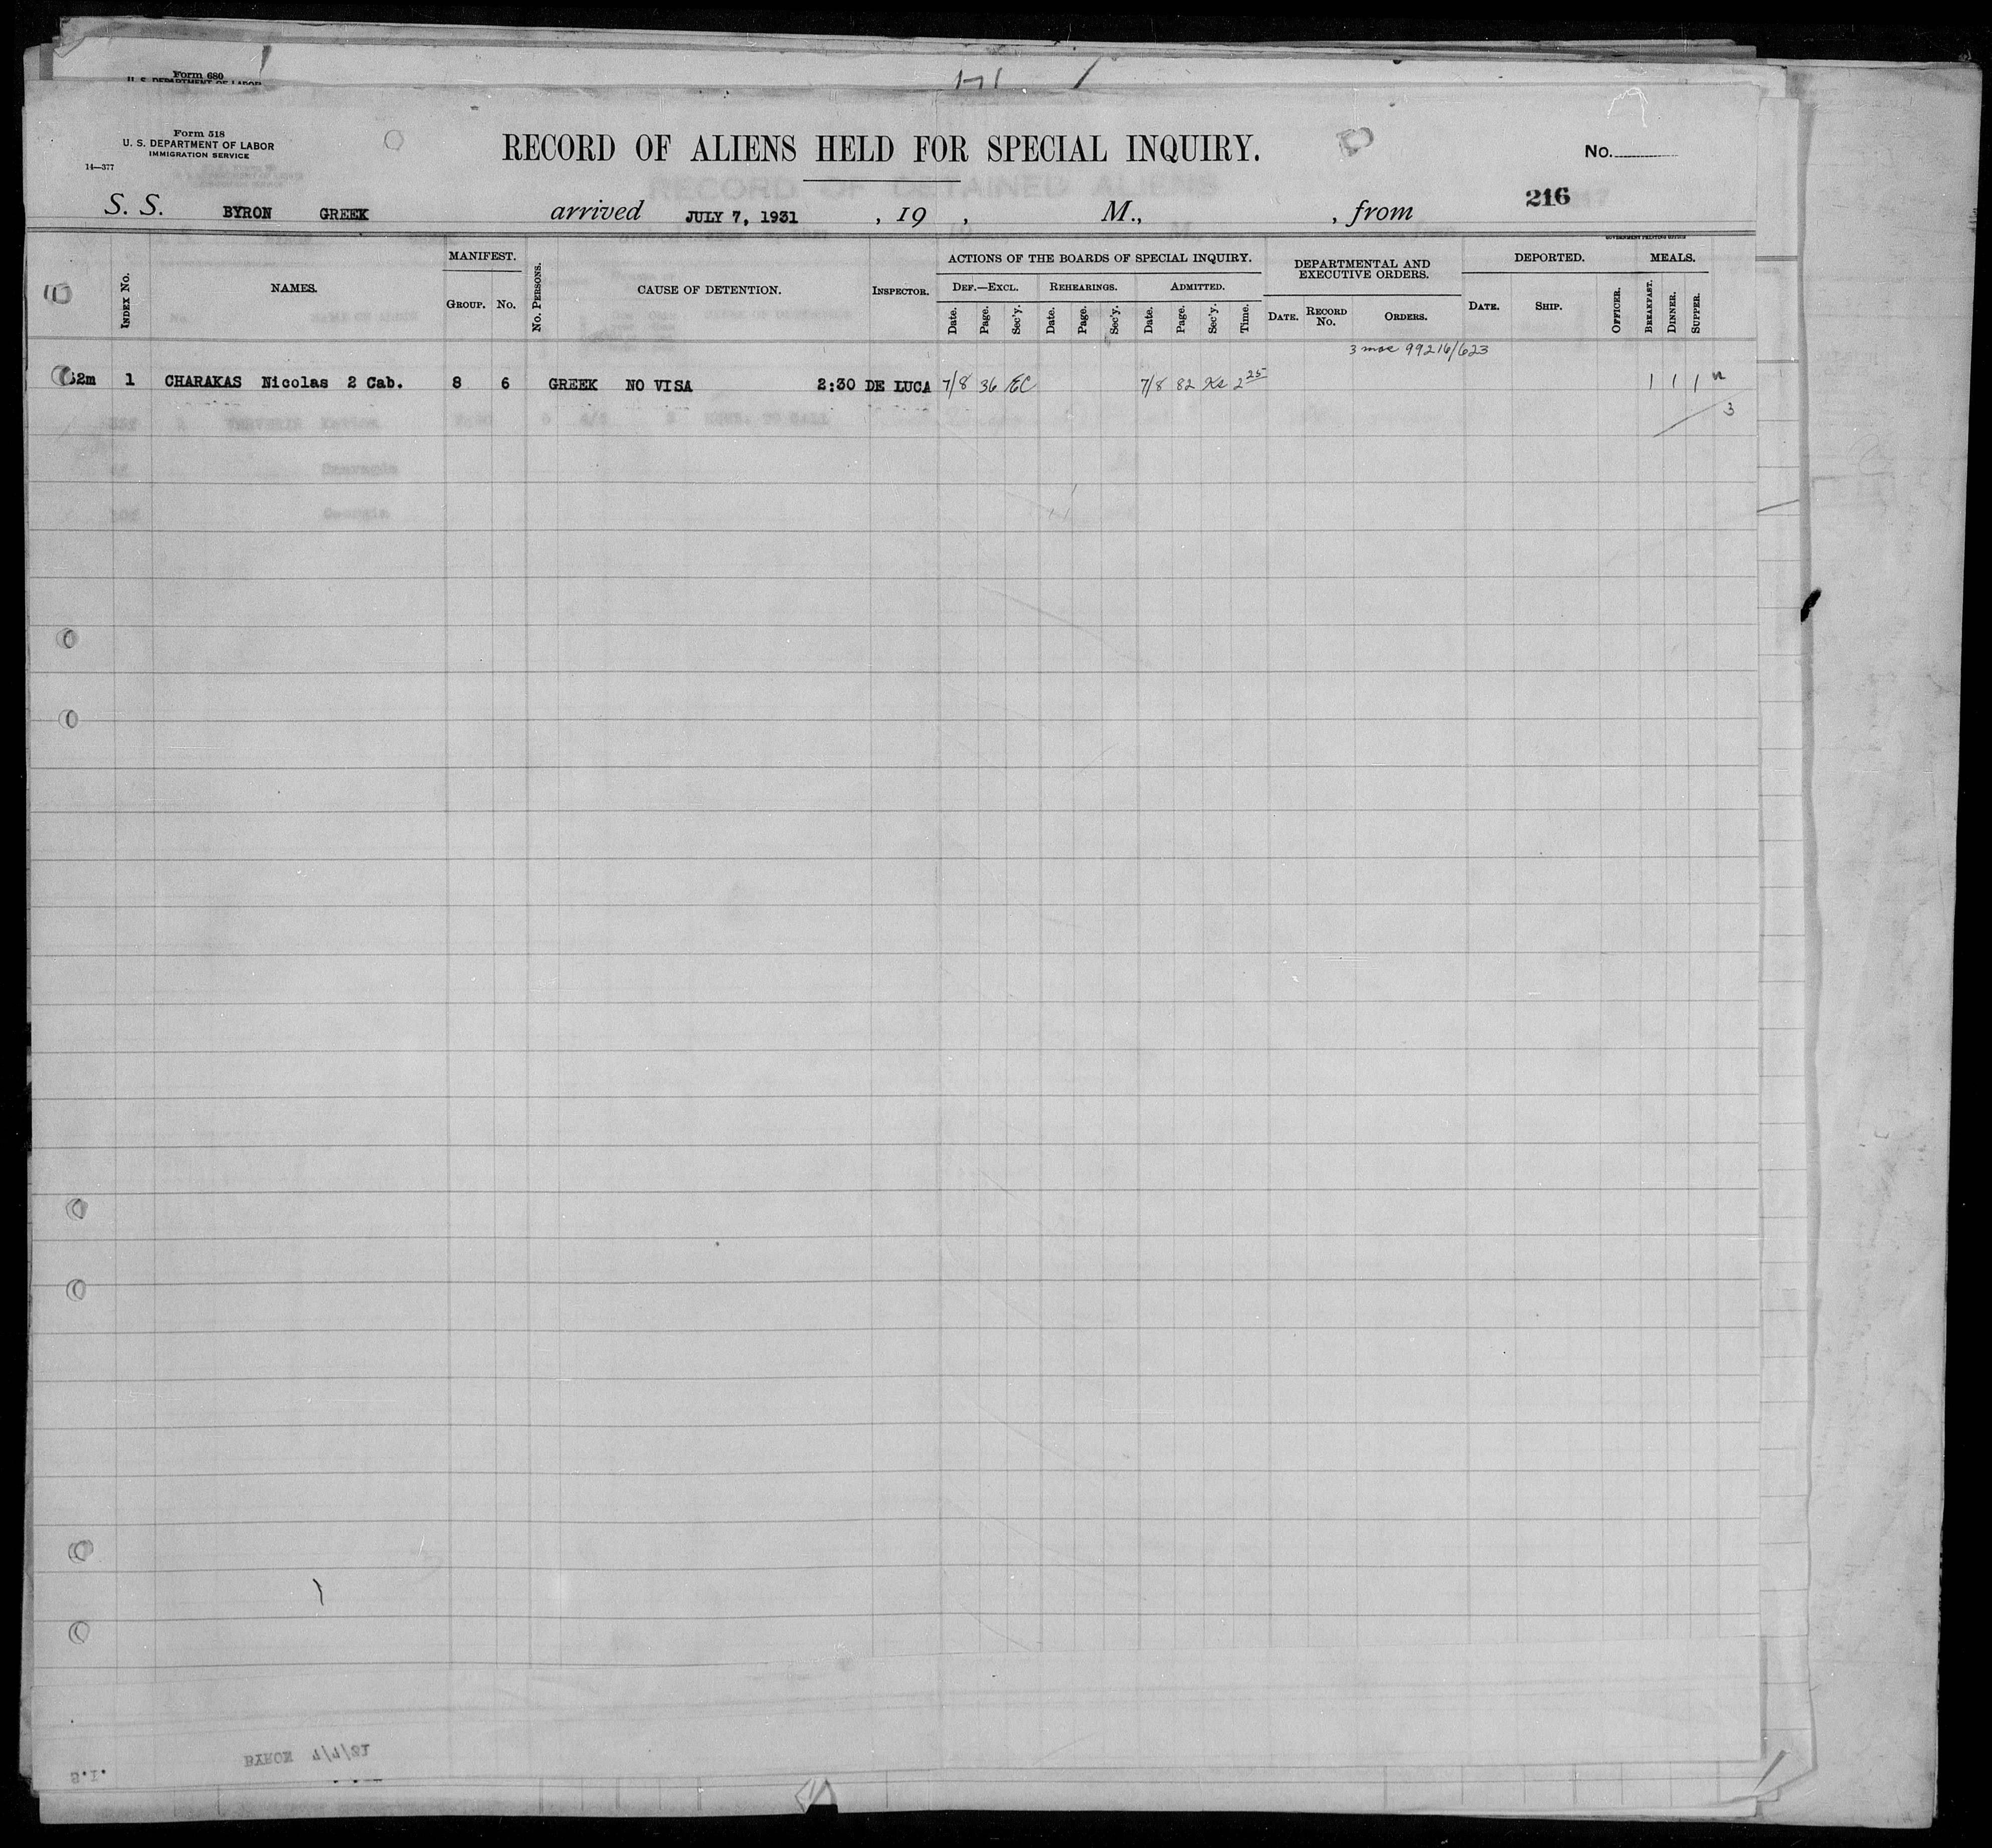 Form 680
U. S. DEPARTMENT OF LABOR
Form 518
U. S. DEPARTMENT OF LABOR
IMMIGRATION SERVICE
14—377
RECORD OF ALIENS HELD FOR SPECIAL INQUIRY.
No.
RECORD OF DETAINED ALIENS
216
S. S. BYRON GREEK arrived JULY 7, 1931, 19 , M., , from
GOVERNMENT PRINTING OFFICE
INDEX No.
NAMES.
MANIFEST.
GROUP. No.
No. PERSONS.
CAUSE OF DETENTION.
INSPECTOR.
ACTIONS OF THE BOARDS OF SPECIAL INQUIRY.
DEF.—EXCL. REHEARINGS. ADMITTED.
Date. Page. Sec'y. Date. Page. Sec'y. Date. Page. Sec'y. Time.
DEPARTMENTAL AND
EXECUTIVE ORDERS.
DATE. RECORD No. ORDERS.
DEPORTED.
DATE. SHIP. OFFICER.
MEALS.
BREAKFAST. DINNER. SUPPER.
3 mos 99216/623
52m 1 CHARAKAS Nicolas 2 Cab. 8 6 GREEK NO VISA 2:30 DE LUCA 7/8 36 EC 7/8 82 2 25 1 1 1
3
Georgia
BYRON 7/7/31
S.I.